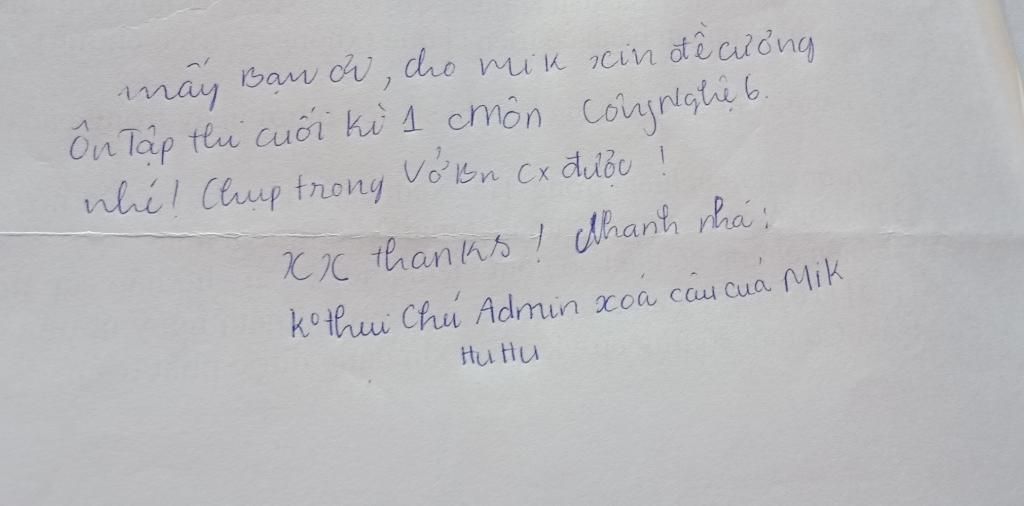 mấy bạn ơi, cho mik xin đề cương
Ôn Tập thi cuối kì 1 cmôn Công nghệ 6.
nhé! Chụp trong vở bn cx được!
xx thanks! Nhanh nha:
kº thui Chú Admin xoá câu của Mik
HuHu